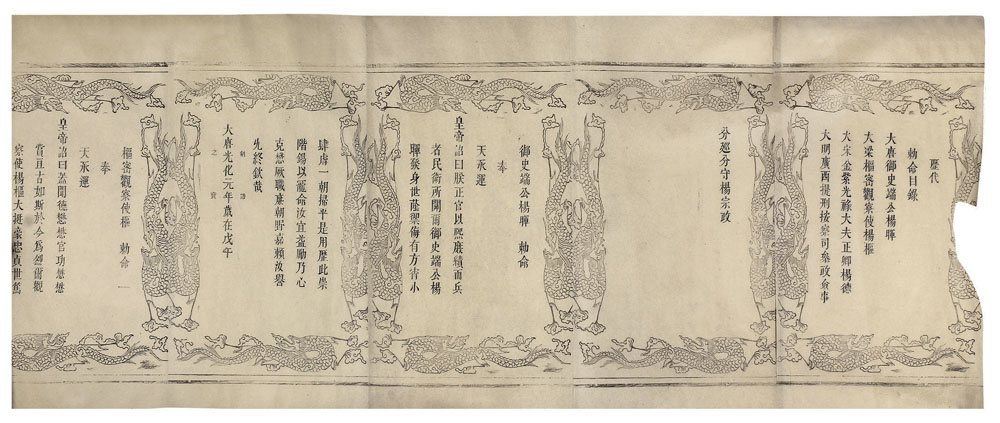 歷代
勅命目錄
大唐御史端公楊暉
大梁樞密觀察使楊權
大宋金紫光祿大夫正卿楊德
大明廣西提刑按察司僉政僉事
分廵分守楊宗政
御史端公楊暉 勅命
奉
天承運
皇帝詔曰朕正官以熙庶績而兵
者民衛所關爾御史端公楊
暉發身世蔭禦侮有方宵小
肆虐一朝掃平是用歷此崇
階錫以寵命汝宜益勵乃心
克懋厥職庶朝野嘉賴汝譽
先終欽哉
大唐光化元年歲在戊午
制誥
之寶
樞密觀察使權 勅命
奉
天承運
皇帝詔曰蓋聞德懋懋官功懋懋
賞亘古如斯於今為烈爾觀
察使楊樞大挺豪忠貞世篤